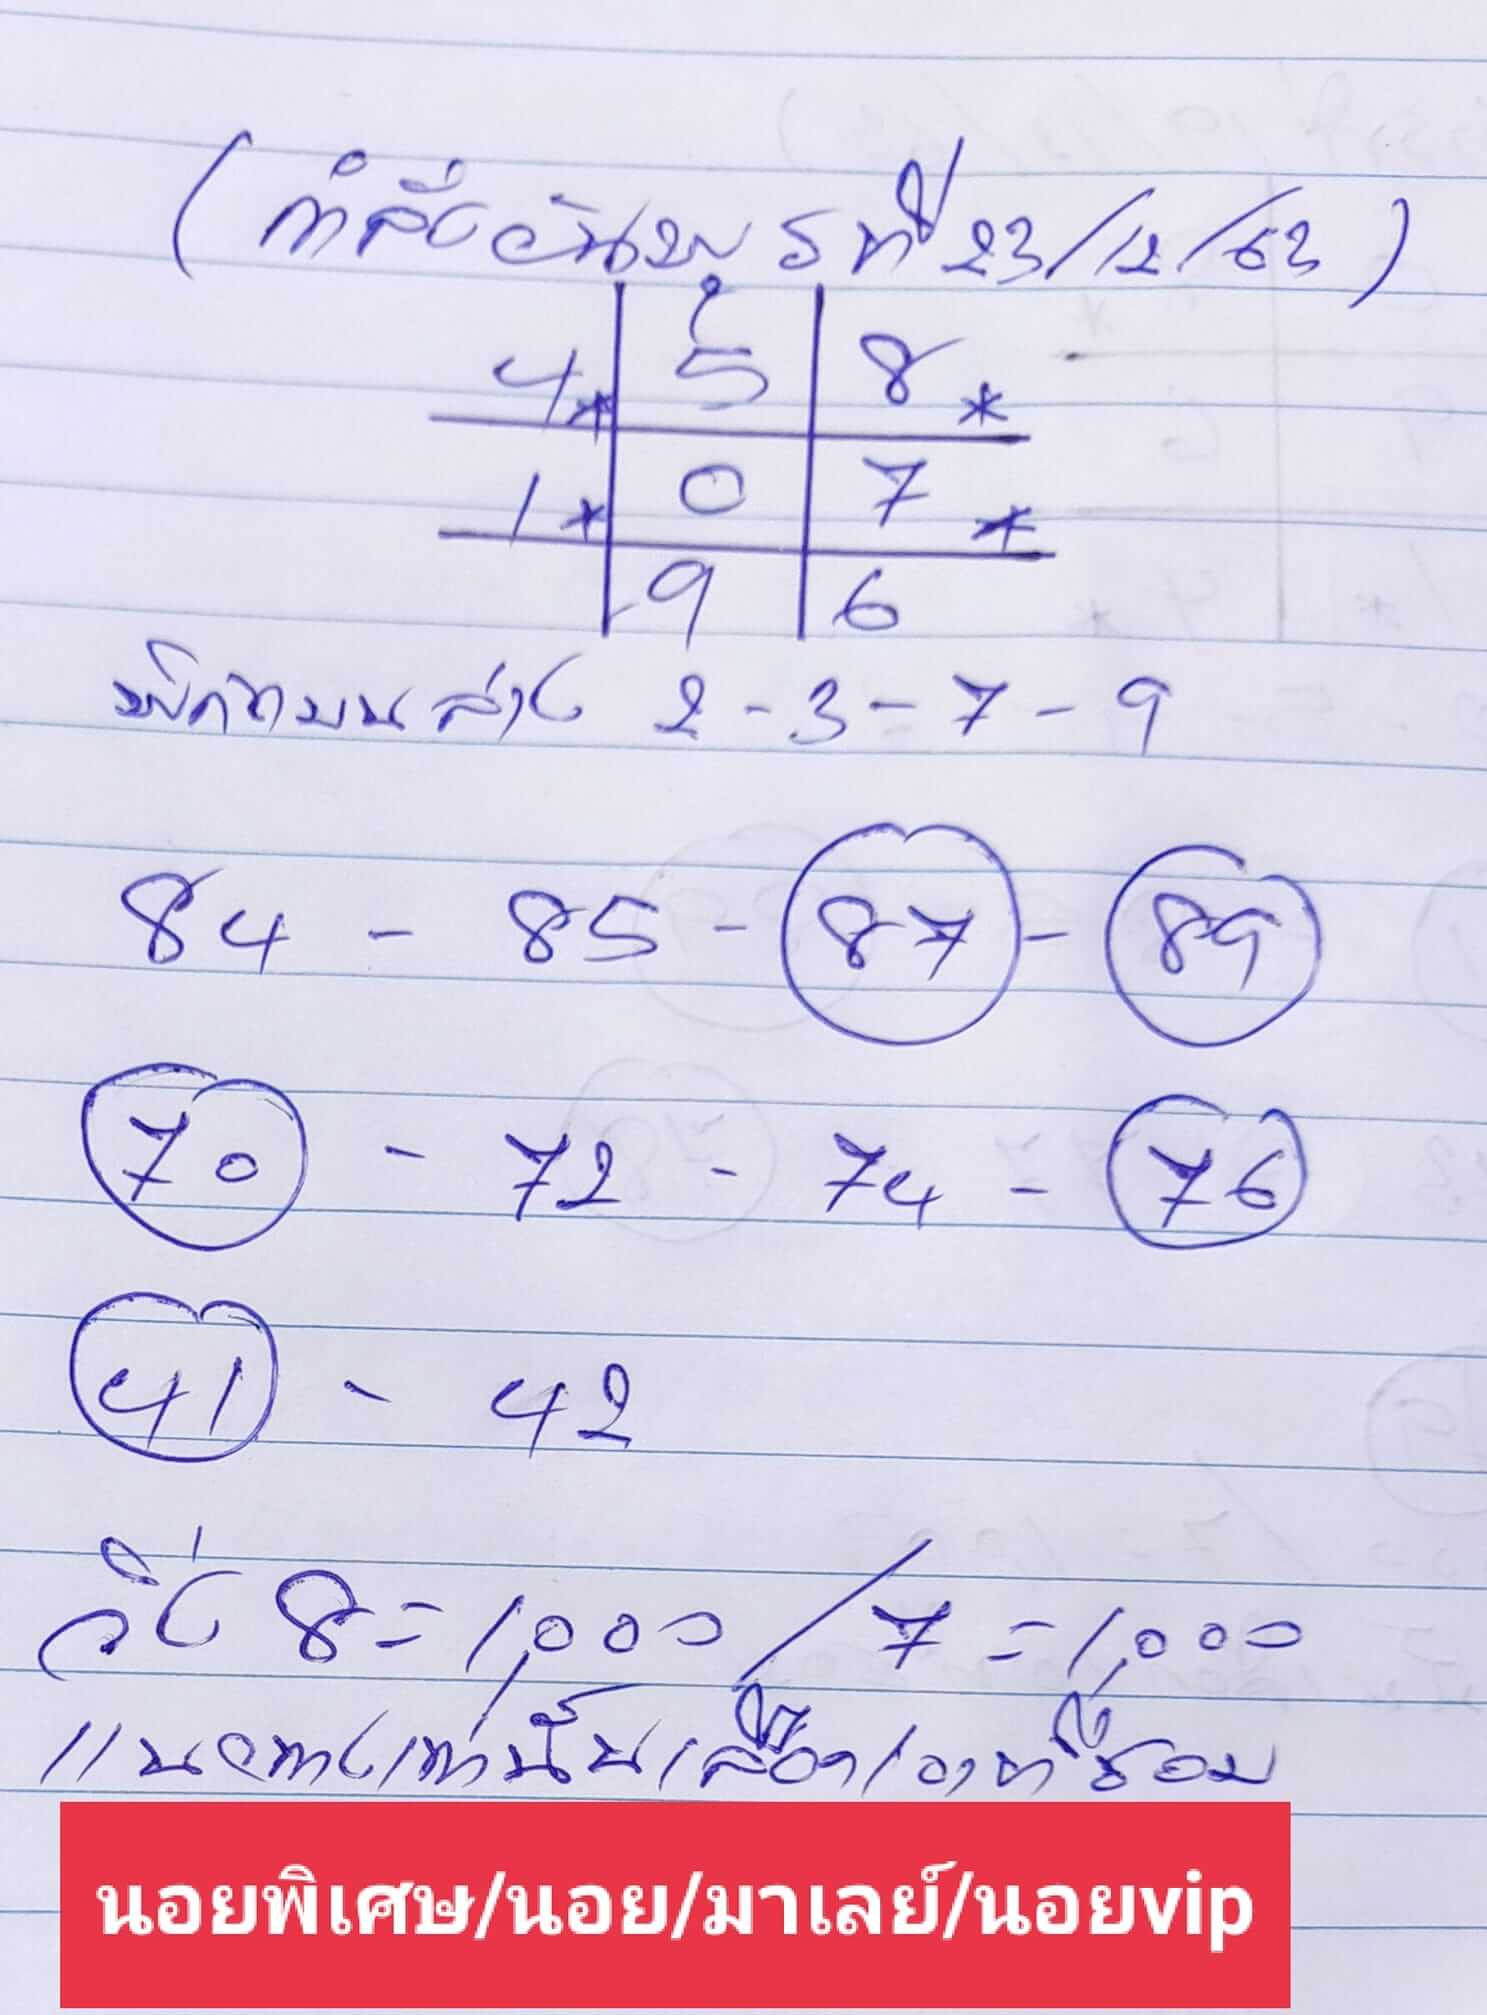 (กำลังวันพุธที่ 23/12/63)
4* 5 8*
1* 0 7*
9 6
พิกัดบนล่าง 2-3-7-9
84 - 85 - 87 - 89
70 - 72 - 74 - 76
41 - 42
วิ่ง 8=1,000/7=1,000
แนวทางเท่านั้นเลือกเอาที่ชอบ
นอยพิเศษ/นอย/มาเลย์/นอยvip